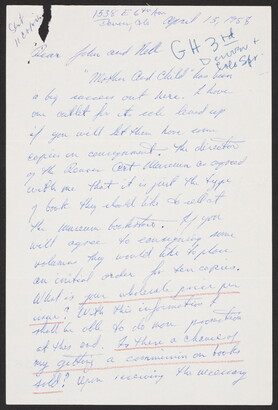 1558 E 6th Ave
Denver, Colo April 15, 1953
Sent
11 copies
GH 3rd
Denver +
Colo Spr
Dear John and
"Mother And Child" has been
a big success out here. I have
one outlet for its sale lined up
if you will let them have some
copies on consignment. The director
of the Denver Art Museum as agreed
with me that it is just the type
of book they should like to sell at
the museum bookstore. If you
will agree to consigning some
volumes they would like to place
an initial order for ten copies.
What is your wholesale price per
volume? With this information I
shall be able to do some promotion
at this end. Is there a chance of
my getting a commission on books
sold? Upon receiving the necessary